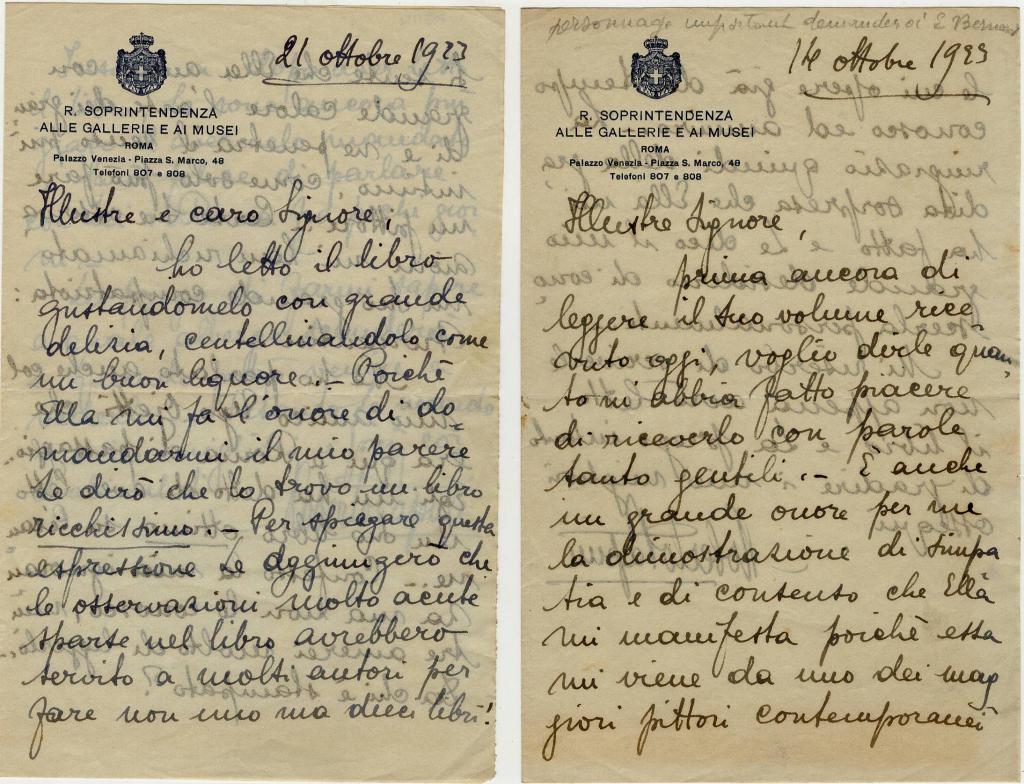 21 ottobre 1933
R. SOPRINTENDENZA
ALLE GALLERIE E AI MUSEI
ROMA
Palazzo Venezia - Piazza S. Marco, 48
Telefoni 807 e 808
Illustre e caro Signore,
ho letto il libro
gustandomelo con grande
delizia, centellinandolo come
un buon liquore. - Poichè
Ella mi fa l'onore di do-
mandarmi il mio parere
Le dirò che lo trovo un libro
ricchissimo. - Per spiegare questa
espressione Le aggiungerò che
le osservazioni molto acute
sparse nel libro avrebbero
servito a molti autori per
fare non uno ma dieci libri!
personnage important demander à E Bernard
14 ottobre 1933
R. SOPRINTENDENZA
ALLE GALLERIE E AI MUSEI
ROMA
Palazzo Venezia - Piazza S. Marco, 48
Telefoni 807 e 808
Illustre Signore,
prima ancora di
leggere il suo volume rice-
vuto oggi, voglio dirle quan-
to mi abbia fatto piacere
di riceverlo con parole
tanto gentili. - È anche
un grande onore per me
la dimostrazione di simpa
tia e di consenso che Ella
mi manifesta poichè essa
mi viene da uno dei mag
giori pittori contemporanei